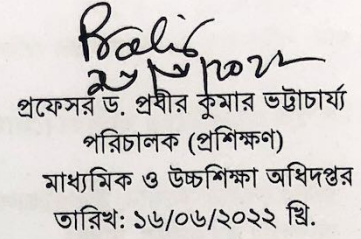 প্রফেসর ড. প্রবীর কুমার ভট্টাচার্য্য
পরিচালক (প্রশিক্ষণ)
মাধ্যমিক ও উচ্চশিক্ষা অধিদপ্তর
তারিখ: ১৬/০৬/২০২২ খ্রি.